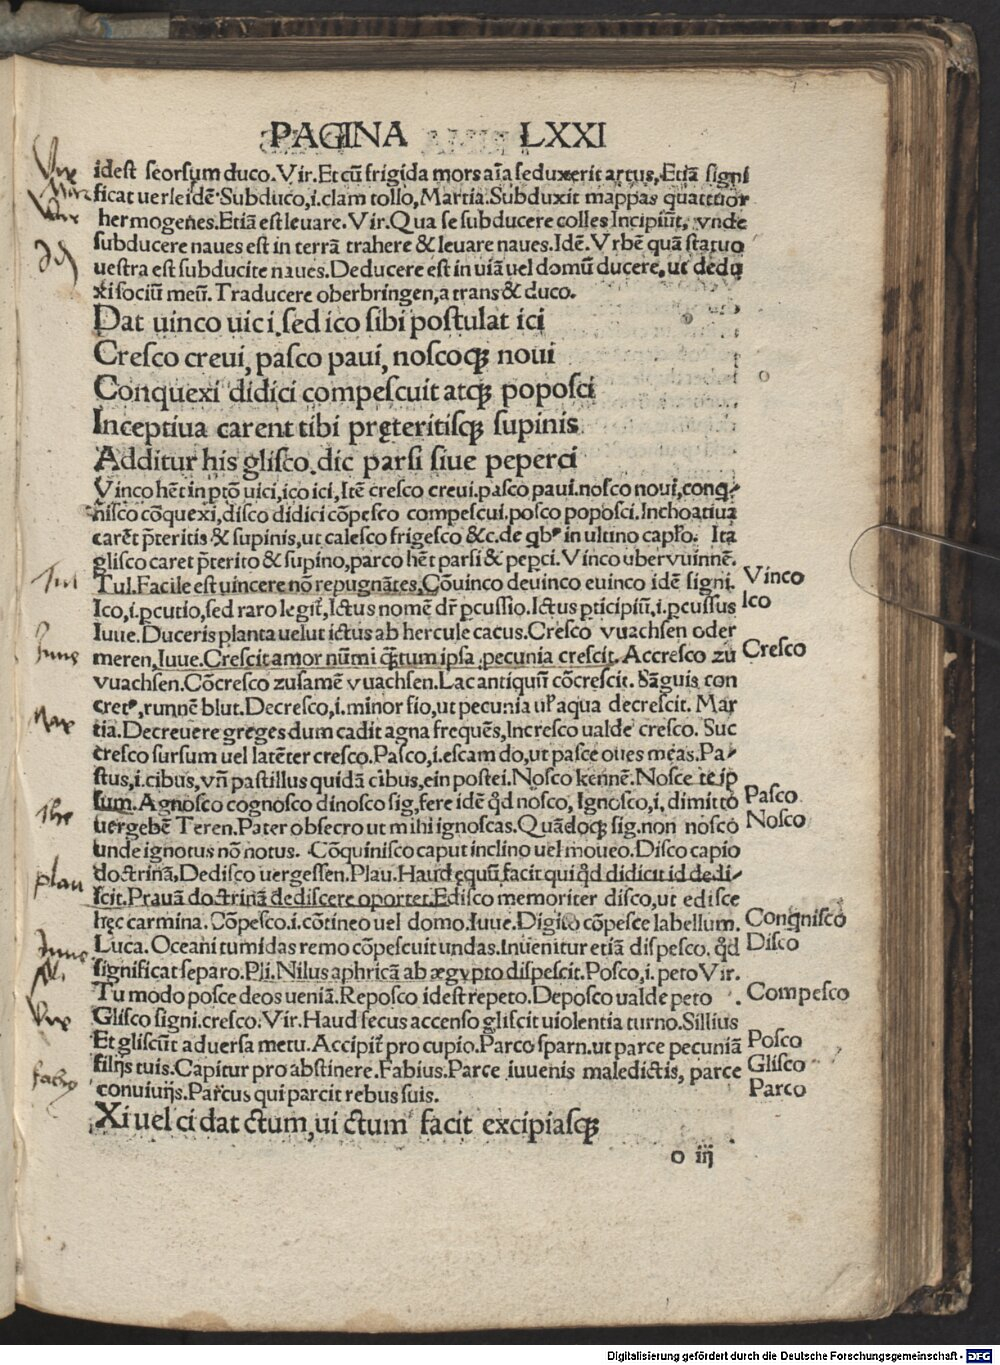 PAGINA LXXI
idest seorsum duco. Vir. Et cũ frigida mors aĩa seduxerit artus, Etiã signi
ficat uerleidẽ. Subduco, i. clam tollo, Martia. Subduxit mappas quattuor
hermogenes. Etiã est leuare. Vir. Qua se subducere colles Incipiũt, vnde
subducere naues est in terrã trahere & leuare naues. Idẽ. Vrbẽ quã statuo
uestra est subducite naues. Deducere est in uiã uel domũ ducere, ut dedu
xi sociũ meũ. Traducere oberbringen, a trans & duco.
Dat uinco uici, sed ico sibi postulat ici
Cresco creui, pasco paui, noscoqꝫ noui
Conquexi didici compescuit atqꝫ poposci
Inceptiua carent tibi pręteritisqꝫ supinis
Additur his glisco, dic parsi siue peperci
Vinco hẽt in ptõ uici, ico ici, Itẽ cresco creui. pasco paui. nosco noui, conq̃
nisco cõquexi, disco didici cõpesco compescui. posco poposci. Inchoatiua
carẽt p̃teritis & supinis, ut calesco frigesco &c. de qbꝰ in ultino capło. Ita
glisco caret p̃terito & supino, parco hẽt parsi & peꝑci. Vinco ubervuinnẽ.
Tul. Facile est uincere nõ repugnãtes, Cõuinco deuinco euinco idẽ signi.
Ico, i. ꝑcutio, sed raro legit̃, Ictus nomẽ dr̃ ꝑcussio. Ictus pticipiũ, i. ꝑcussus
Iuue. Duceris planta uelut ictus ab hercule cacus. Cresco vuachsen oder
meren, Iuue. Crescit amor nũmi q̃tum ipsa pecunia crescit. Accresco zu
vuachsen. Cõcresco zusamẽ vuachsen. Lac antiquũ cõcrescit. Sãguis con
cretꝰ, runnẽ blut. Decresco, i. minor fio, ut pecunia uł aqua decrescit. Mar
tia. Decreuere greges dum cadit agna frequẽs, Incresco ualde cresco. Suc
cresco sursum uel latẽter cresco. Pasco, i. escam do, ut pasce oues meas. Pa-
stus, i. cibus, vñ pastillus quidã cibus, ein postei. Nosco kennẽ. Nosce te ip
sum. Agnosco cognosco dinosco sig, fere idẽ q̊d nosco, Ignosco, i, dimitto
uergebẽ Teren. Pater obsecro ut mihi ignoscas. Quãdoqꝫ sig. non nosco
unde ignotus nõ notus. Cõquinisco caput inclino uel moueo. Disco capio
doctrinã, Dedisco uergessen. Plau. Haud ęquũ facit qui q̊d didicit id dedi-
scit. Prauã doctrinã dediscere oportet. Edisco memoriter disco, ut edisce
hęc carmina. Cõpesco. i. cõtineo uel domo. Iuue. Digito cõpesce labellum.
Luca. Oceani tumidas remo cõpescuit undas. Inuenitur etiã dispesco. q̊d
significat separo. Pli. Nilus aphricã ab ægypto dispescit. Posco, i. peto Vir.
Tu modo posce deos ueniã. Reposco idest repeto. Deposco ualde peto .
Glisco signi. cresco. Vir. Haud secus accenso gliscit uiolentia turno. Sillius
Et gliscũt aduersa metu. Accipit̃ pro cupio. Parco sparn. ut parce pecuniã
filijs tuis. Capitur pro abstinere. Fabius. Parce iuuenis maledictis, parce
conuiuijs. Parcus qui parcit rebus suis.
Xi uel ci dat ctum, ui ctum facit excipiasqꝫ
o iij
Vinco
Ico
Cresco
Pasco
Nosco
Conqnisco
Disco
Compesco
Posco
Glisco
Parco
Vir
Mar
Vir
Id
Tul
Iuue
Mar
The
plau
Iuue
Pli.
Vir
faby
Digitalisierung gefördert durch die Deutsche Forschungsgemeinschaft - DFG